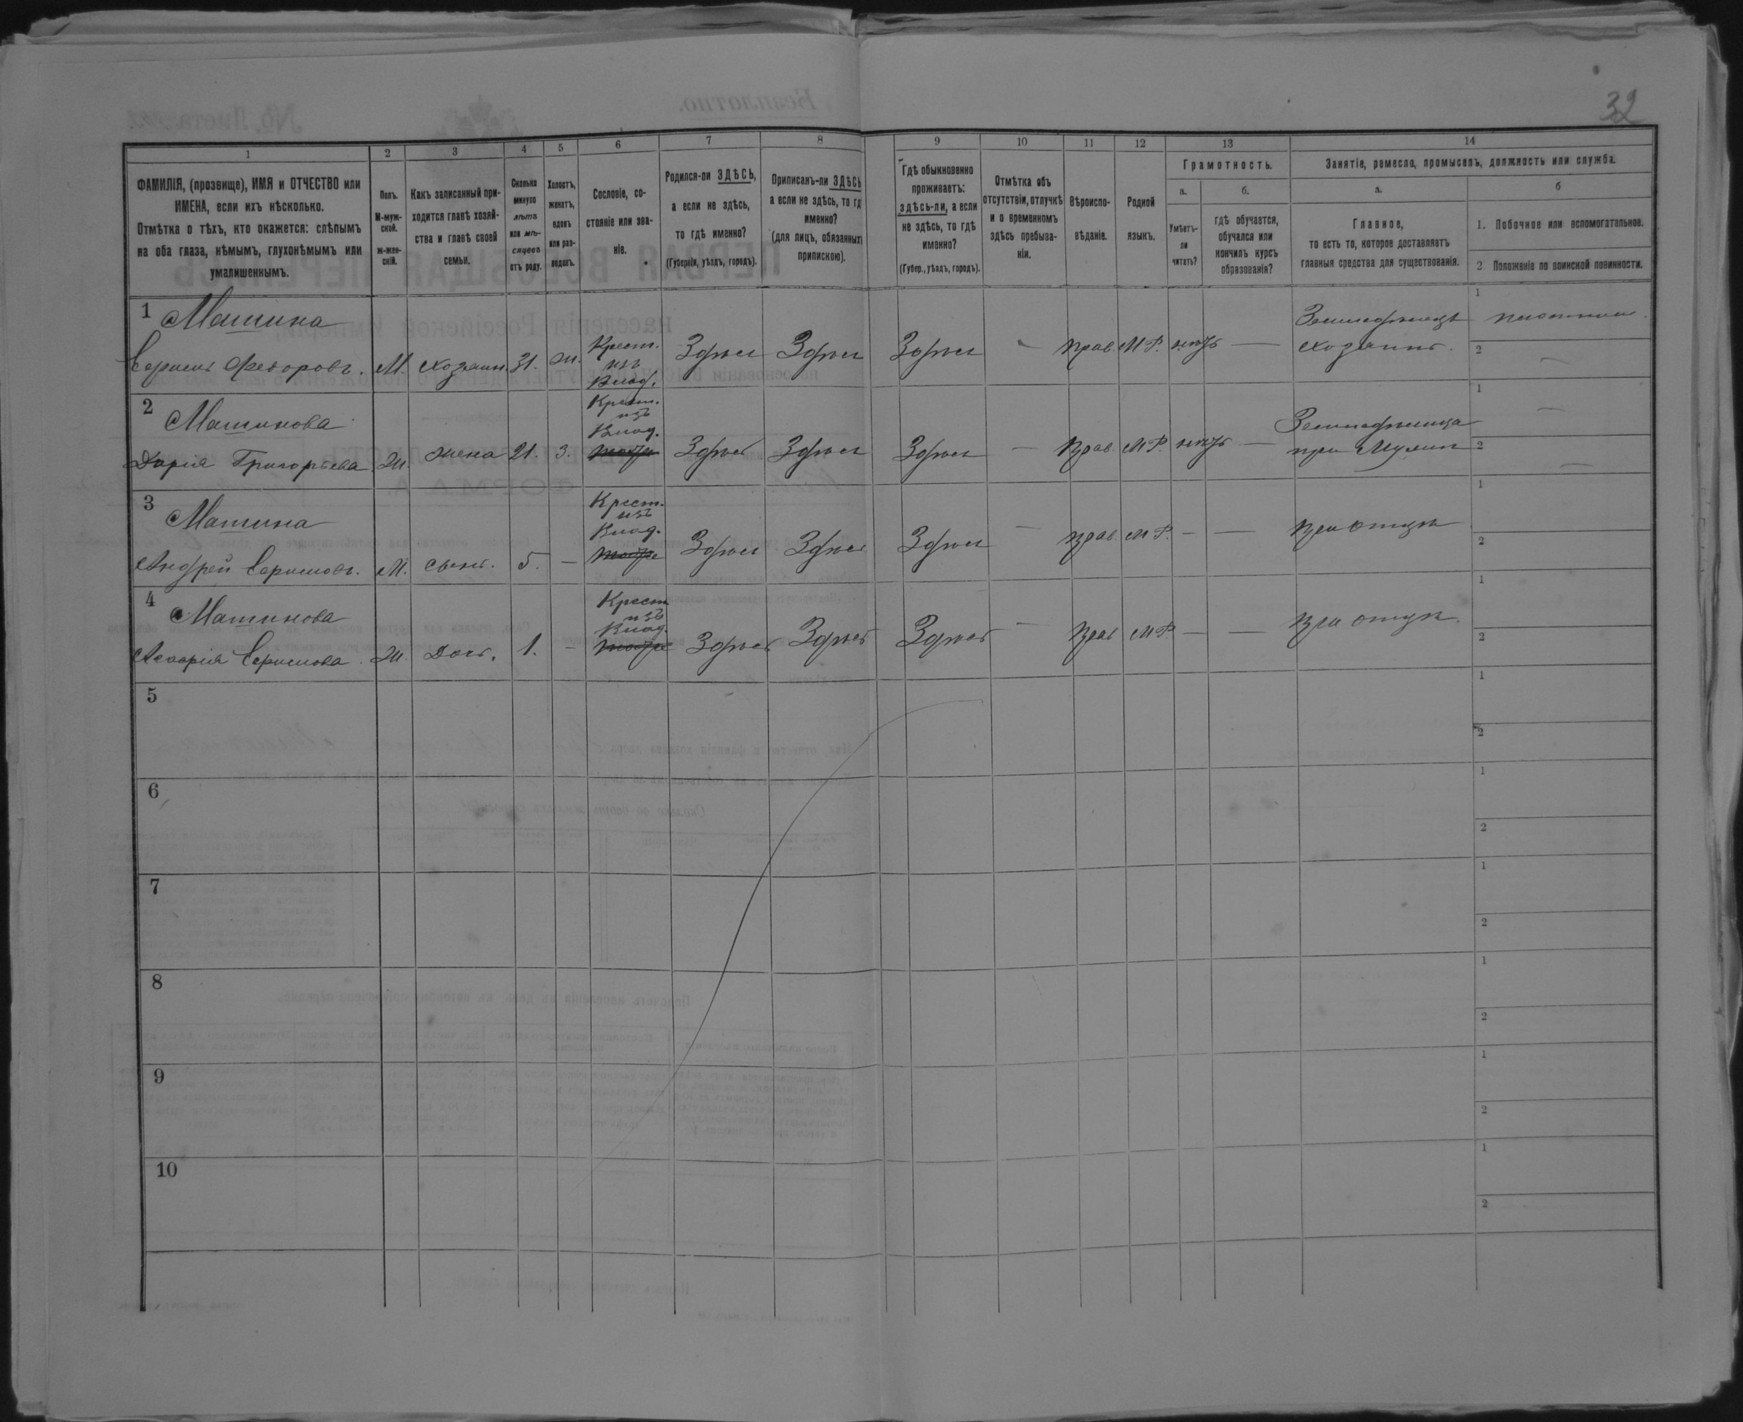 32
1
2
3
4
5
6
7
8
9
10
11
12
13
14
ФАМИЛІЯ, (прозвище), ИМЯ и ОТЧЕСТВО или
ИМЕНА, если ихъ нѣсколько.
Отмѣтка о тѣхъ, кто окажется: слѣпымъ
на оба глаза, нѣмымъ, глухонѣмымъ или
умалишеннымъ.
Полъ.
М-муж-
ской.
ж-жен-
скій.
Какъ записанный при-
ходится главѣ хозяй-
ства и главѣ своей
семьи.
Сколько
минуло
лѣтъ
или мѣ-
сяцевъ
отъ роду.
Холостъ,
женатъ,
вдовъ
или раз-
веденъ.
Сословіе, со-
стояніе или зва-
ніе.
Родился-ли ЗДѢСЬ,
а если не здѣсь,
то гдѣ именно?
(Губернія, уѣздъ, городъ).
Приписанъ-ли ЗДѢСЬ
а если не здѣсь, то гд
именно?
(для лицъ, обязанных
припискою).
Гдѣ обыкновенно
проживаетъ:
здѣсь-ли, а если
не здѣсь, то гдѣ
именно?
(Губер., уѣздъ, городъ).
Отмѣтка объ
отсутствіи, отлучкѣ
и о временномъ
здѣсь пребыва-
ніи.
Вѣроиспо-
вѣданіе.
Родной
языкъ.
Грамотность.
а.
Умѣетъ-
ли
читать?
б.
гдѣ обучается,
обучался или
кончилъ курсъ
образованія?
Занятіе, ремесло, промыселъ, должность или служба.
а.
Главное,
то есть то, которое доставляетъ
главныя средства для существованія.
б
1. Побочное или вспомогательное.
2. Положеніе по воинской повинности.
1 Машина
Федоровъ. М. хозяин. 31. Ж. Крест. изъ Влад. Здѣсь Здѣсь Здѣсь - Прав М.Р. нѣтъ — Земледѣлецъ хозяинъ. 1
2 —
2 Машинова
Дарія Григорьева Ж. жена 21. З. Крест. изъ Влад. Здѣсь Здѣсь Здѣсь — Прав М.Р. нѣтъ — при Мужѣ 1 —
2 —
3 Машина
Андрей М. сынъ. 5. — Крест. изъ Влад. Здѣсь Здѣсь Здѣсь — прав М.Р. — — При отцѣ 1
2
4 Машинова
Ж. Доч. 1. - Крест изъ Влад. Здѣсь Здѣсь Здѣсь — Прав М.Р. — — При отцѣ. 1
2
5 1
2
6 1
2
7 1
2
8 1
2
9 1
2
10 1
2